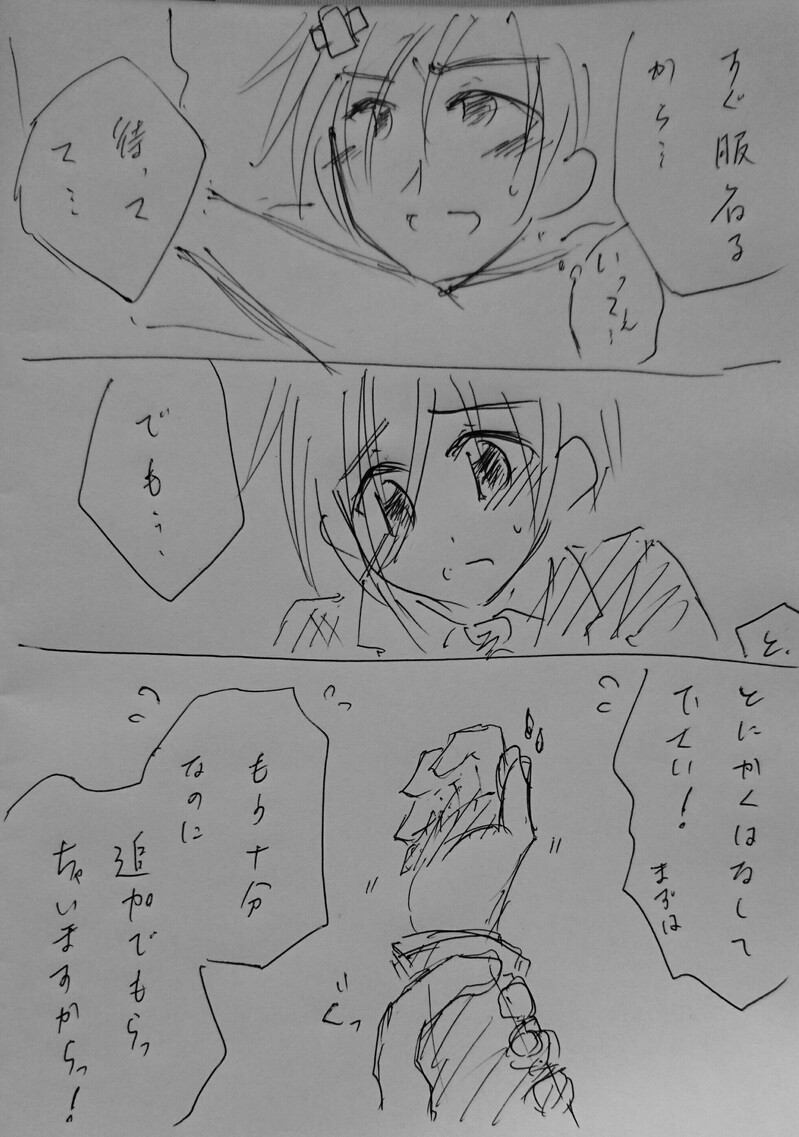 すぐ服着る
から…
いってぇ…
待って
て…
でもぅ…
と、
とにかくはなして
下さい!
まずは
もう十分
なのに
追加でもらっ
ちゃいますからっ!
ぐいっ